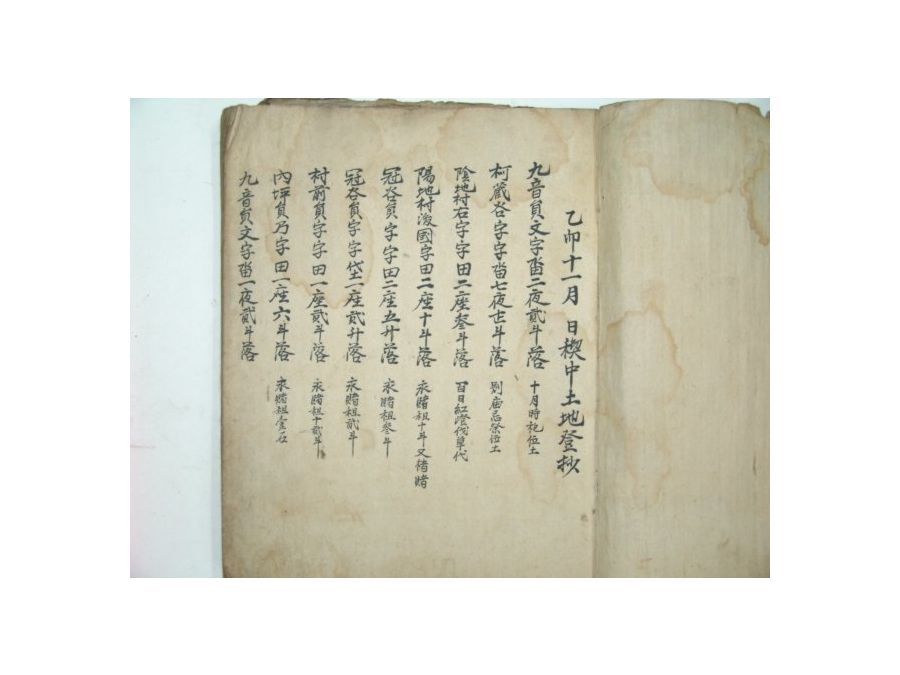 乙卯十一月 日稧中土地登抄
九音員文字畓二夜貳斗落 十月時祀位土
柯藏谷字字畓七夜㐀斗落 別庙忌祭位土
陰地村右字字田二座叁斗落 百日紅漑伐草代
陽地村後國字田二座十斗落 永賭租十斗又楮賭
冠谷員字字田二座五升落 永賭租叁斗
冠谷員字字垈一座貳升落 永賭租貳斗
村前員字字田一座貳斗落 永賭租十貳斗
內坪員乃字田一座六斗落 永賭租壹石
九音員文字畓一夜貳斗落